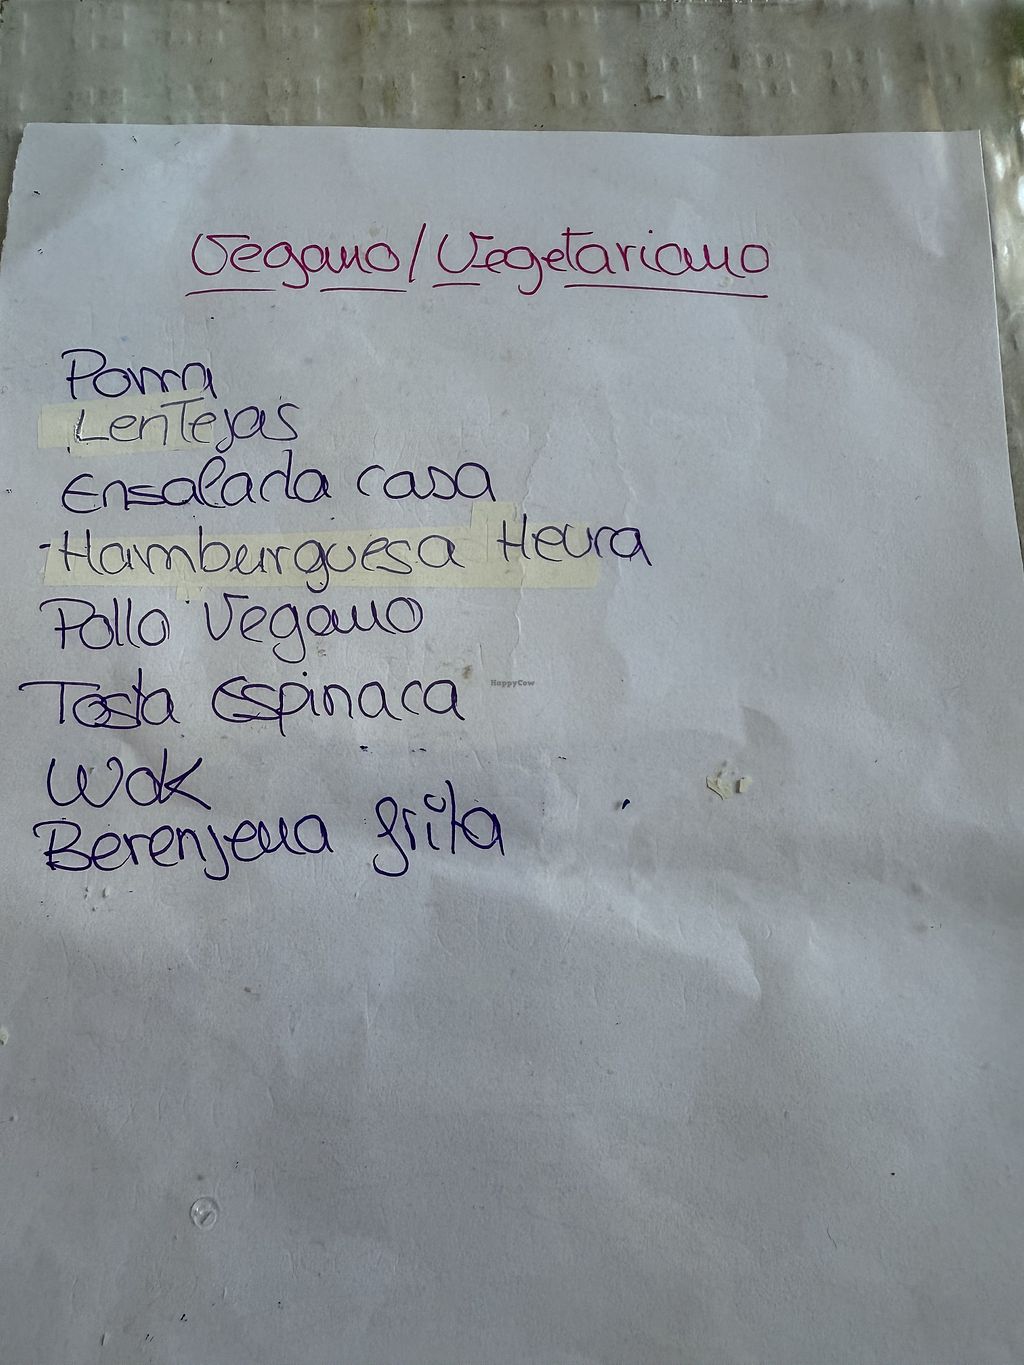 Vegano/Vegetariano
Poma
Lentejas
Ensalada casa
-Hamburguesa Heura
Pollo Vegano
Tosta Espinaca
HappyCow
Wok
Berenjena frita